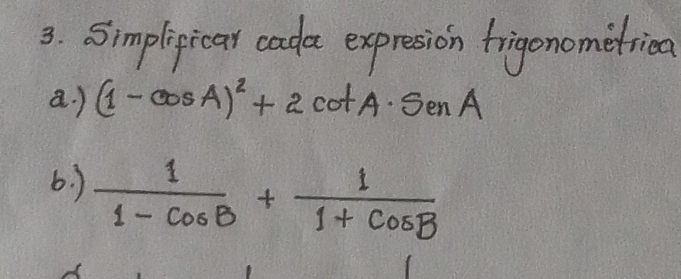 3. Simplificar cada expresión trigonométrica
a.) (1 - cos A)² + 2 cot A · Sen A
b.) 1/(1 - Cos B) + 1/(1 + Cos B)